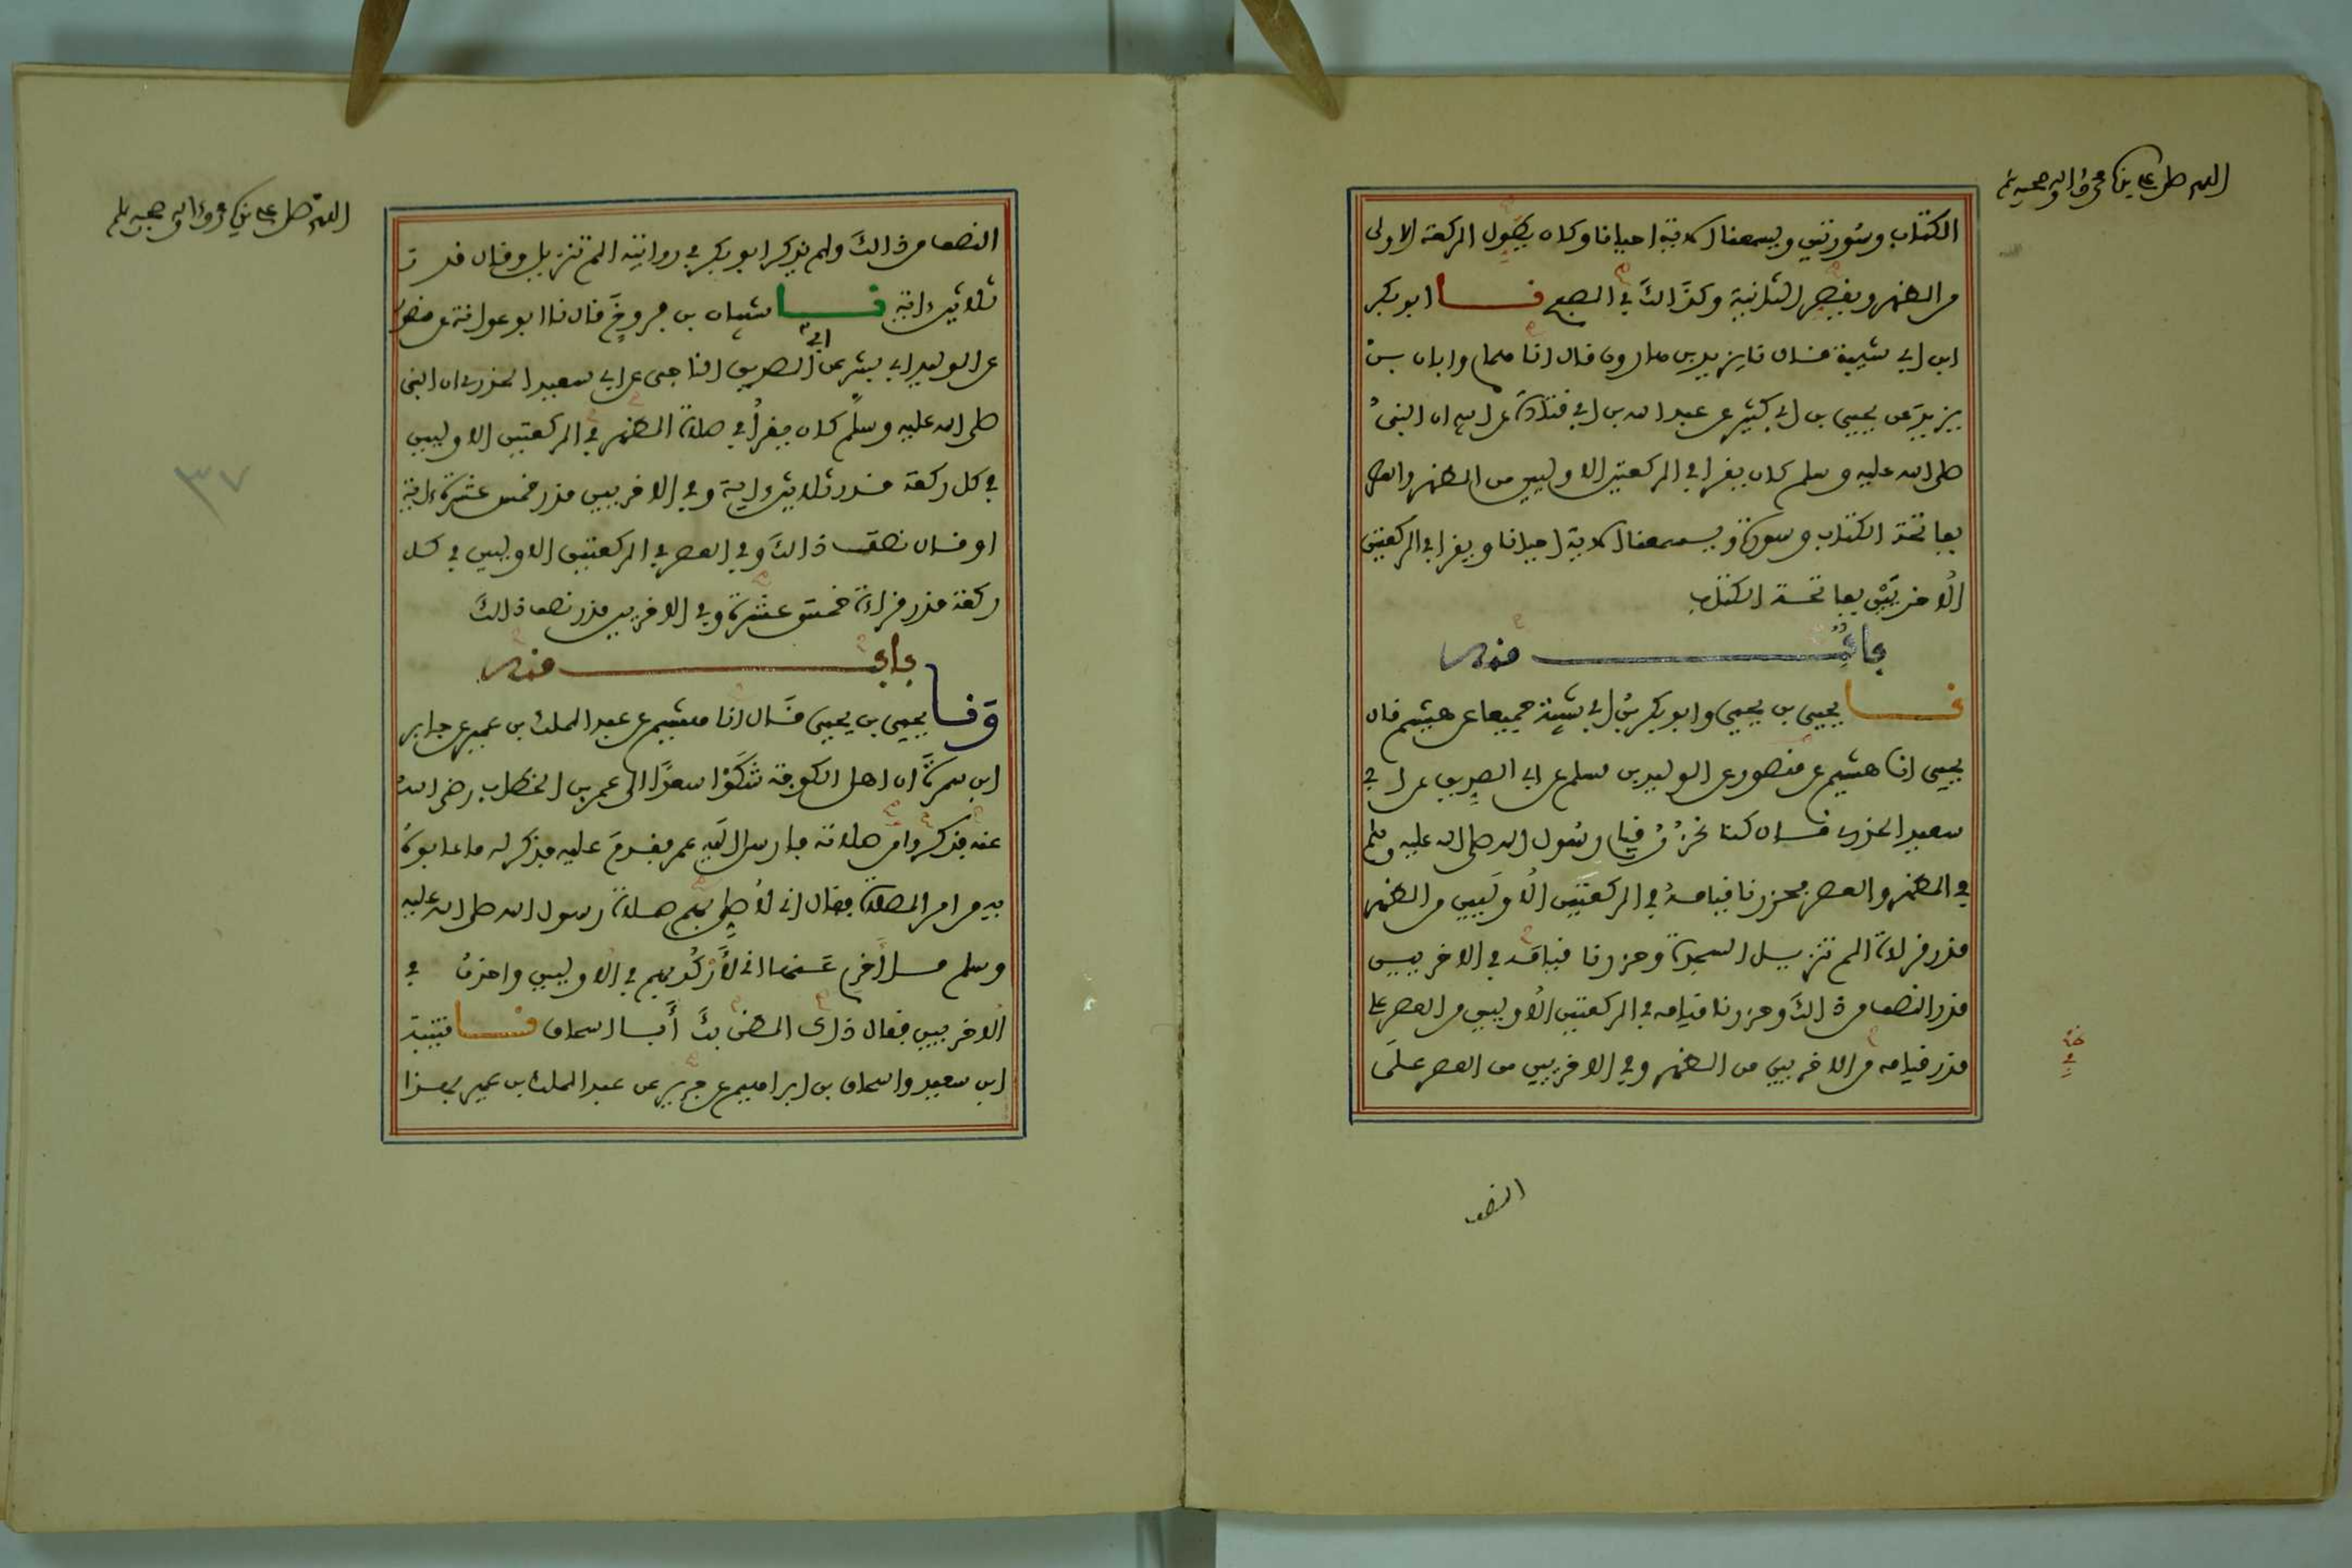 اللهم صل على نبينا محمد وءاله وصحبه وسلم
الكتاب وسورتين ويسمعنا الاية احيانا وكان يطول الركعة الاولى
من الظهر ويقصر الثانية وكذالك في الصبح نا ابو بكر
ابن ابي شيبة قال نا يزيد بن هارون قال انا همام وابان بن
يزيد عن يحيى بن ابي كثير عن عبد الله بن ابي قتادة عن ابيه ان النبي
صلى الله عليه وسلم كان يقرا في الركعتين الاوليين من الظهر والعصر
بفاتحة الكتاب وسورة ويسمعنا الاية احيانا ويقرا في الركعتين
الاخريين بفاتحة الكتاب
باب منه
نا يحيى بن يحيى وابو بكر بن ابي شيبة جميعا عن هشيم قال
يحيى انا هشيم عن منصور عن الوليد بن مسلم عن ابي الصديق عن ابي
سعيد الخدري قال كنا نحزر قيام رسول الله صلى الله عليه وسلم
في الظهر والعصر فحزرنا قيامه في الركعتين الاوليين من الظهر
قدر قراءة الم تنزيل السجدة وحزرنا قيامه في الاخريين
قدر النصف من ذالك وحزرنا قيامه في الركعتين الاوليين من العصر على
قدر قيامه من الاخريين من الظهر وفي الاخريين من العصر على
النصف
اللهم صل على نبينا محمد وءاله وصحبه وسلم
النصف من ذالك ولم يذكر ابو بكر في روايته الم تنزيل وقال قدر
ثلاثين ءاية نا شيبان بن فروخ قال نا ابو عوانة عن منصور
عن الوليد ابي بشر عن ابي الصديق الناجي عن ابي سعيد الخدري ان النبي
صلى الله عليه وسلم كان يقرأ في صلاة الظهر في الركعتين الاوليين
في كل ركعة قدر ثلاثين ءاية وفي الاخريين قدر خمس عشرة ءاية
او قال نصف ذالك وفي العصر في الركعتين الاوليين في كل
ركعة قدر قراءة خمس عشرة وفي الاخريين قدر نصف ذالك
باب منه
ونا يحيى بن يحيى قال انا هشيم عن عبد الملك بن عمير عن جابر
ابن سمرة ان اهل الكوفة شكوا سعدا الى عمر بن الخطاب رضي الله
عنه فذكروا من صلاته فارسل اليه عمر فقدم عليه فذكر له ما عابوه
به من امر الصلاة فقال اني لأصلي بهم صلاة رسول الله صلى الله عليه
وسلم ما أخرم عنها اني لأركد بهم في الاوليين واحذف في
الاخريين فقال ذاك الظن بك أبا اسحاق نا قتيبة
ابن سعيد واسحاق بن ابراهيم عن جرير عن عبد الملك بن عمير بهذا
٣٧